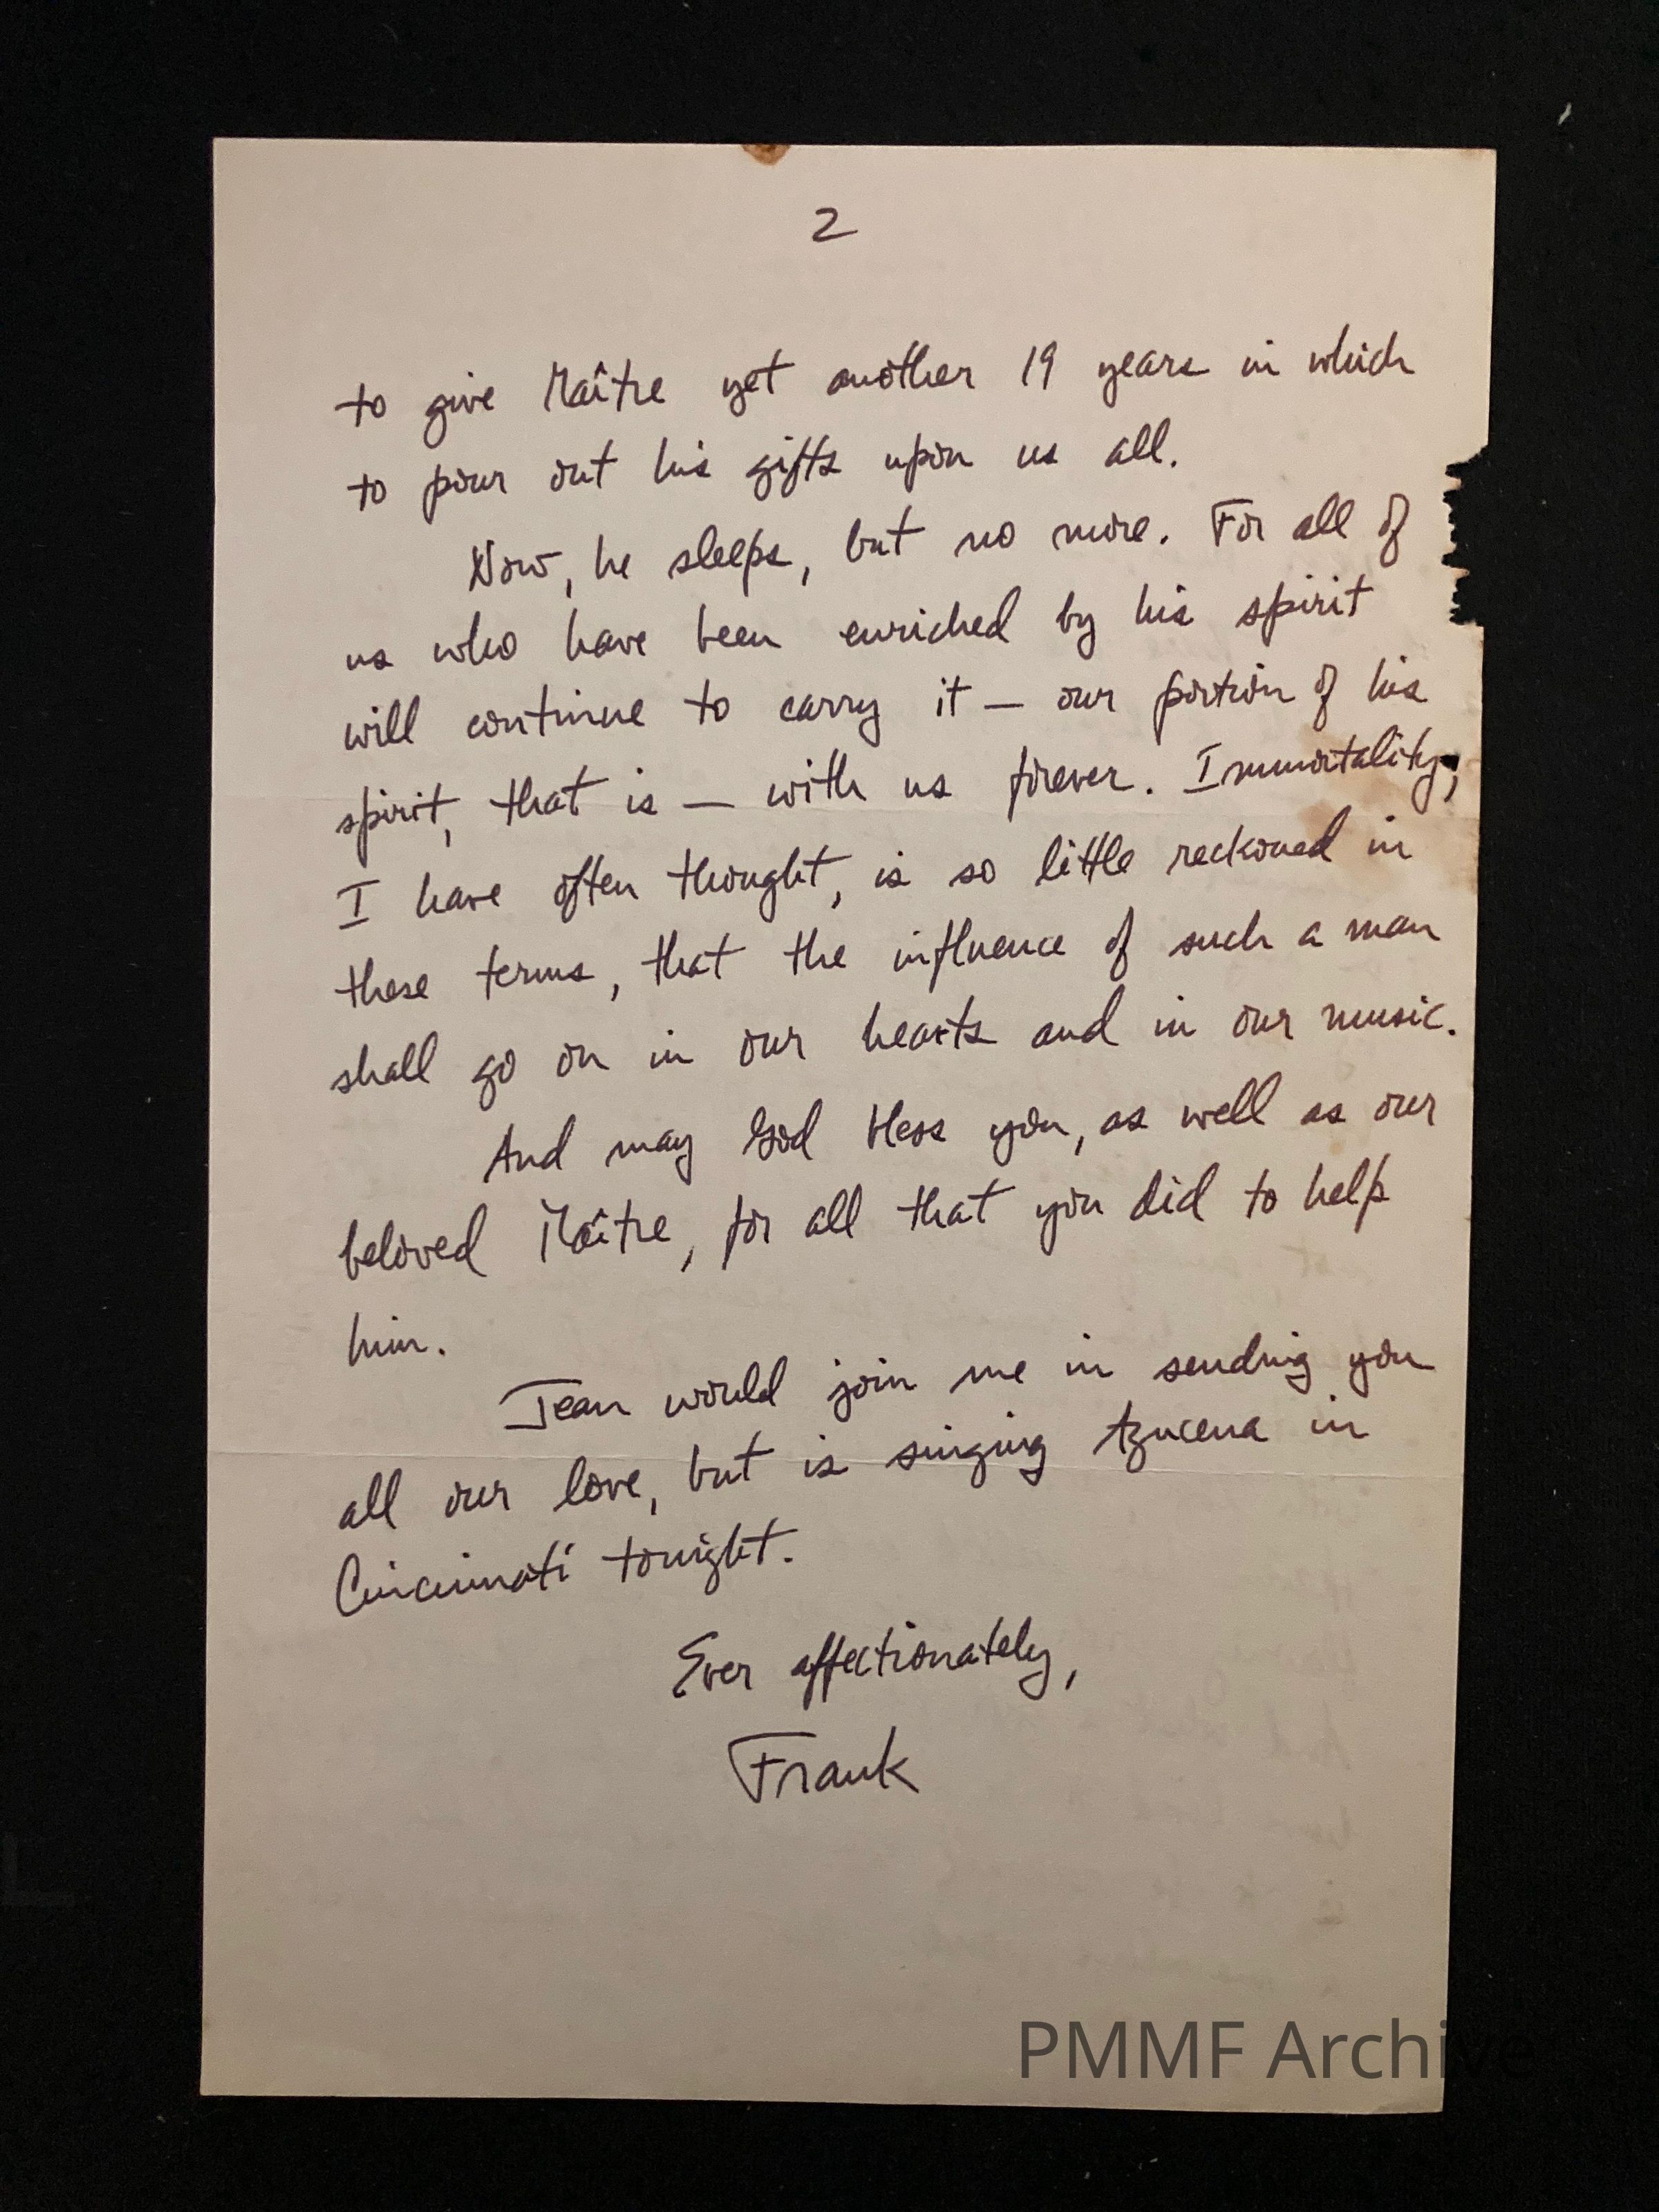 2
to give Maître yet another 19 years in which
to pour out his gifts upon us all.
Now, he sleeps, but no more. For all of
us who have been enriched by his spirit
will continue to carry it — our portion of his
spirit, that is — with us forever. Immortality,
I have often thought, is so little reckoned in
these terms, that the influence of such a man
shall go on in our hearts and in our music.
And may God bless you, as well as our
beloved Maître, for all that you did to help
him.
Jean would join me in sending you
all our love, but is singing Azucena in
Cincinnati tonight.
Ever affectionately,
Frank
PMMF Archive